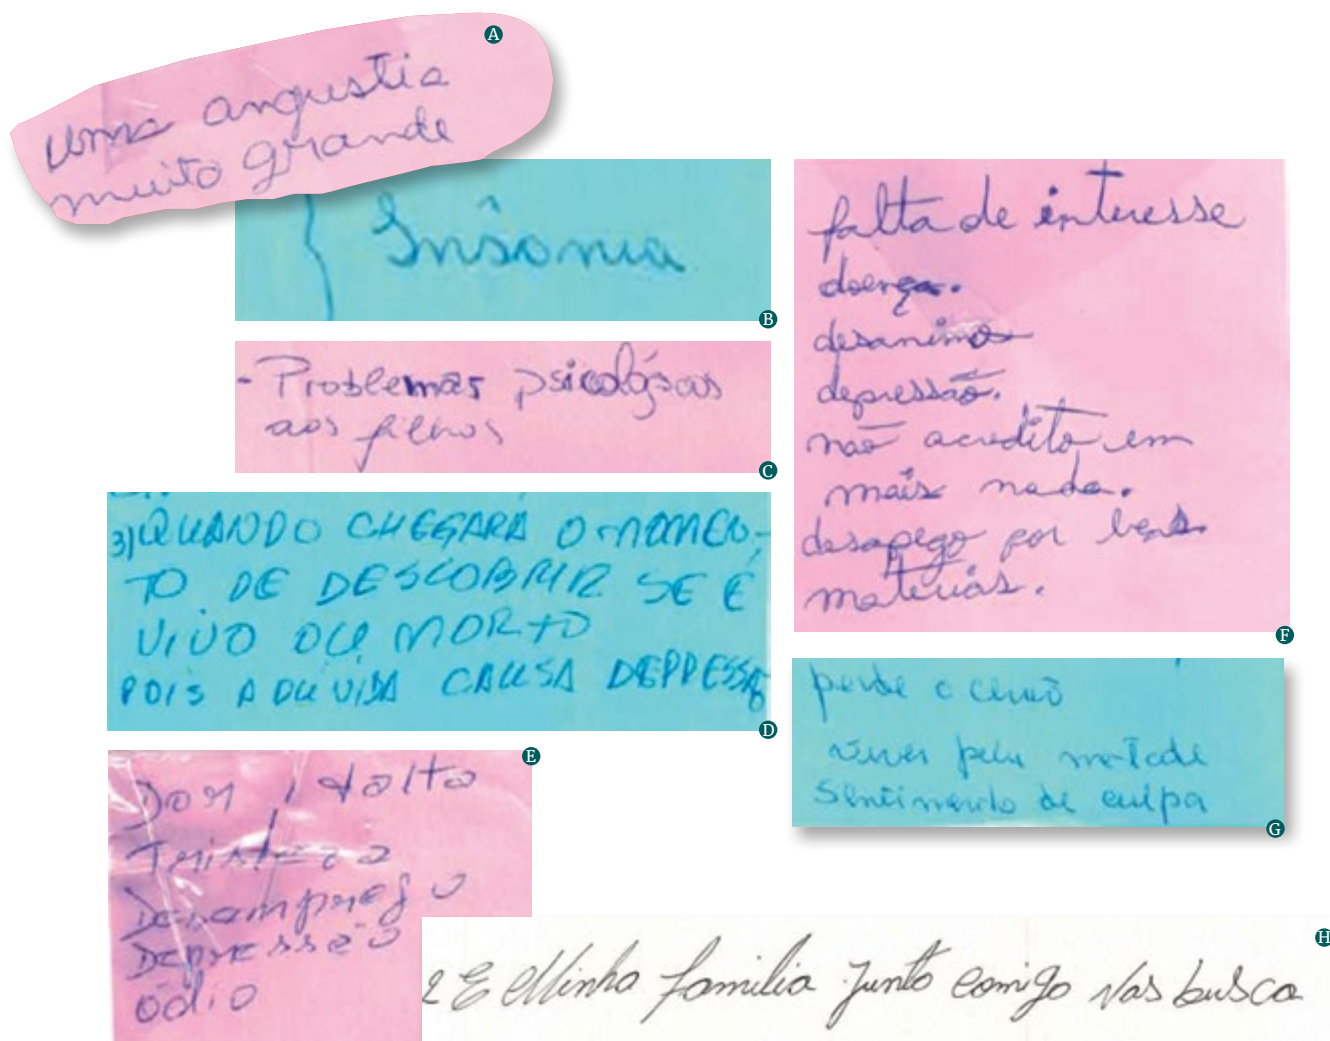 A
uma angustia
muito grande
Insônia
B
- Problemas psicológicos
aos filhos
C
3) QUANDO CHEGARÁ O MOMEN-
TO DE DESCOBRIR SE É
VIVO OU MORTO
POIS A DÚVIDA CAUSA DEPRESSÃO
D
E
Dor, Falta
Tristeza
Desamprego
Depressão
ódio
falta de interesse
doença.
desanimo
depressão.
não acredito em
mais nada.
desapego por bens
materiais.
F
perde o
viver pela metade
sentimento de culpa
G
H
2 E Minha familia junto comigo Nas busca